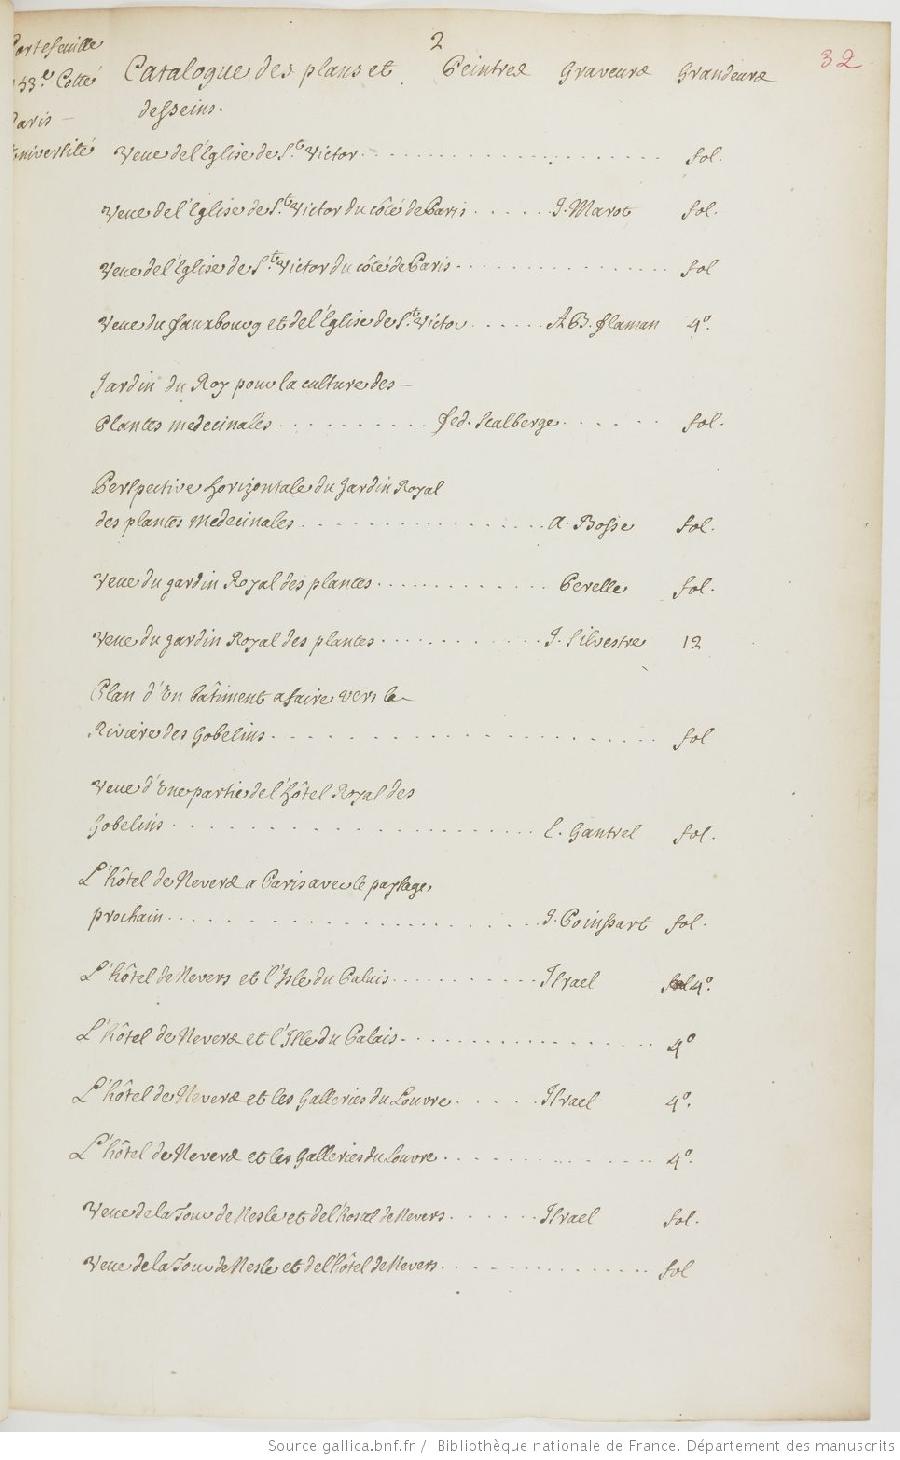 2
32
Portefeuille
53.e Cotté
Paris –
Université
Catalogue des plans et desseins. Peintres Graveurs Grandeurs
Veue de l'Eglise de St. Victor . . . . . . . . . . fol.
Veue de l'Eglise de St. Victor du côté de Paris . . . . . . J. Marot fol.
Veue de l'Eglise de St. Victor du côté de Paris . . . . . . . . . . fol
Veue du fauxbourg et de l'Eglise de St. Victor . . . . . . A B. flaman 4º.
Jardin du Roy pour la culture des –
Plantes medecinales . . . . . . . . . fed. Scalberge . . . . . . fol.
Perspective horizontale du Jardin Royal
des plantes medecinales . . . . . . . . . . a Bosse fol.
Veue du gardin Royal des plantes . . . . . . . . . . Perelle fol.
Veue du gardin Royal des plantes . . . . . . . . . . J. Silvestre 12
Plan d'un bâtiment a faire vers la –
Riviere des Gobelins . . . . . . . . . . fol
Veue d'une partie de l'hôtel Royal des
Gobelins . . . . . . . . . . L. Gantrel fol.
L'hôtel de Nevers a Paris avec le paysage
prochain . . . . . . . . . . J. Poinssart fol.
L'hôtel de Nevers et l'Isle du Palais . . . . . . . . . . Israel 4º.
L'hôtel de Nevers et l'Isle du Palais . . . . . . . . . . 4º
L'hôtel de Nevers et les Galleries du Louvre . . . . . . Israel 4º.
L'hôtel de Nevers et les Galleries du Louvre . . . . . . . . . . 4º.
Veue de la Tour de Nesle et de l'hosal de Nevers . . . . . . Israel fol.
Veue de la Tour de Nesle et de l'hôtel de Nevers . . . . . . . . . . fol
Source gallica.bnf.fr / Bibliothèque nationale de France. Département des manuscrits